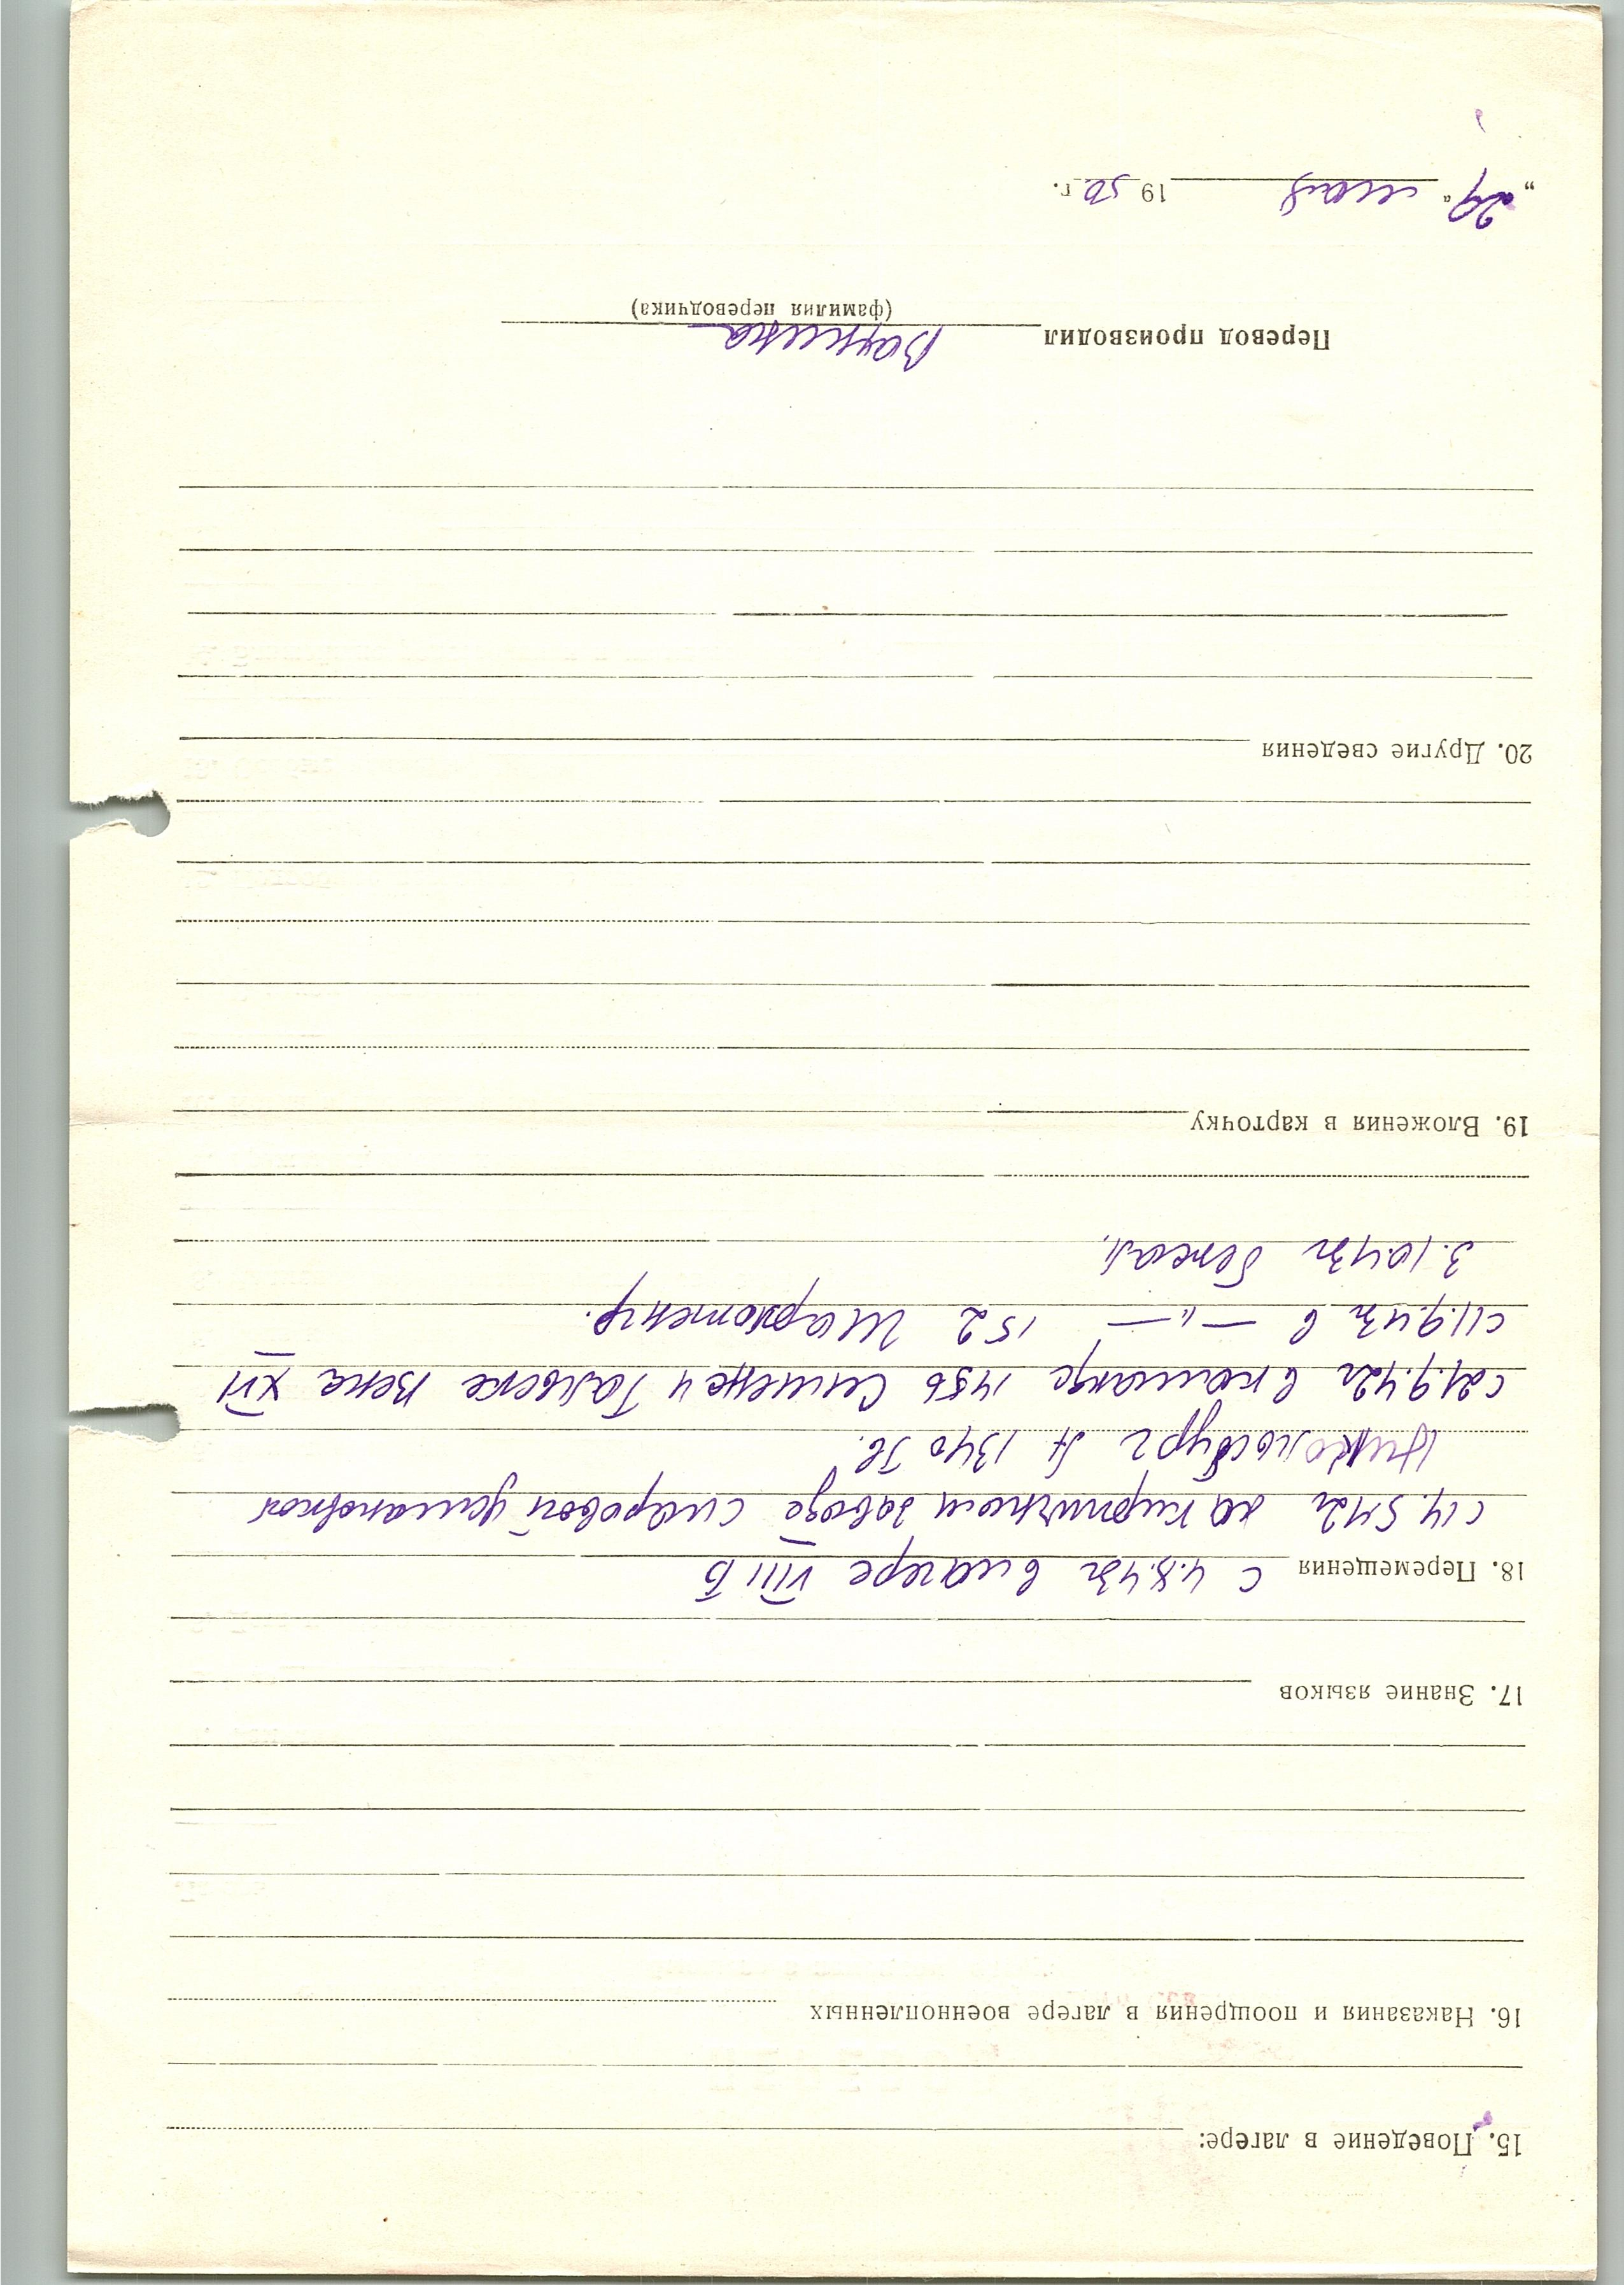 15. Поведение в лагере:
16. Наказания и поощрения в лагере военнопленных
17. Знание языков
18. Перемещения с 4.8.43г в лагере VIII Б
с 14.5.42г на кирпичном заводе с паровой установкой
Никольсбург А 1340 Гв.
с 21.9.42г в команде 1456 Сименс и Гальске Вена XVII
с 11.9.43г в —„— 152
3.10.43г бежал.
19. Вложения в карточку
20. Другие сведения
Перевод производил
(фамилия переводчика)
„29“ мая 1950 г.